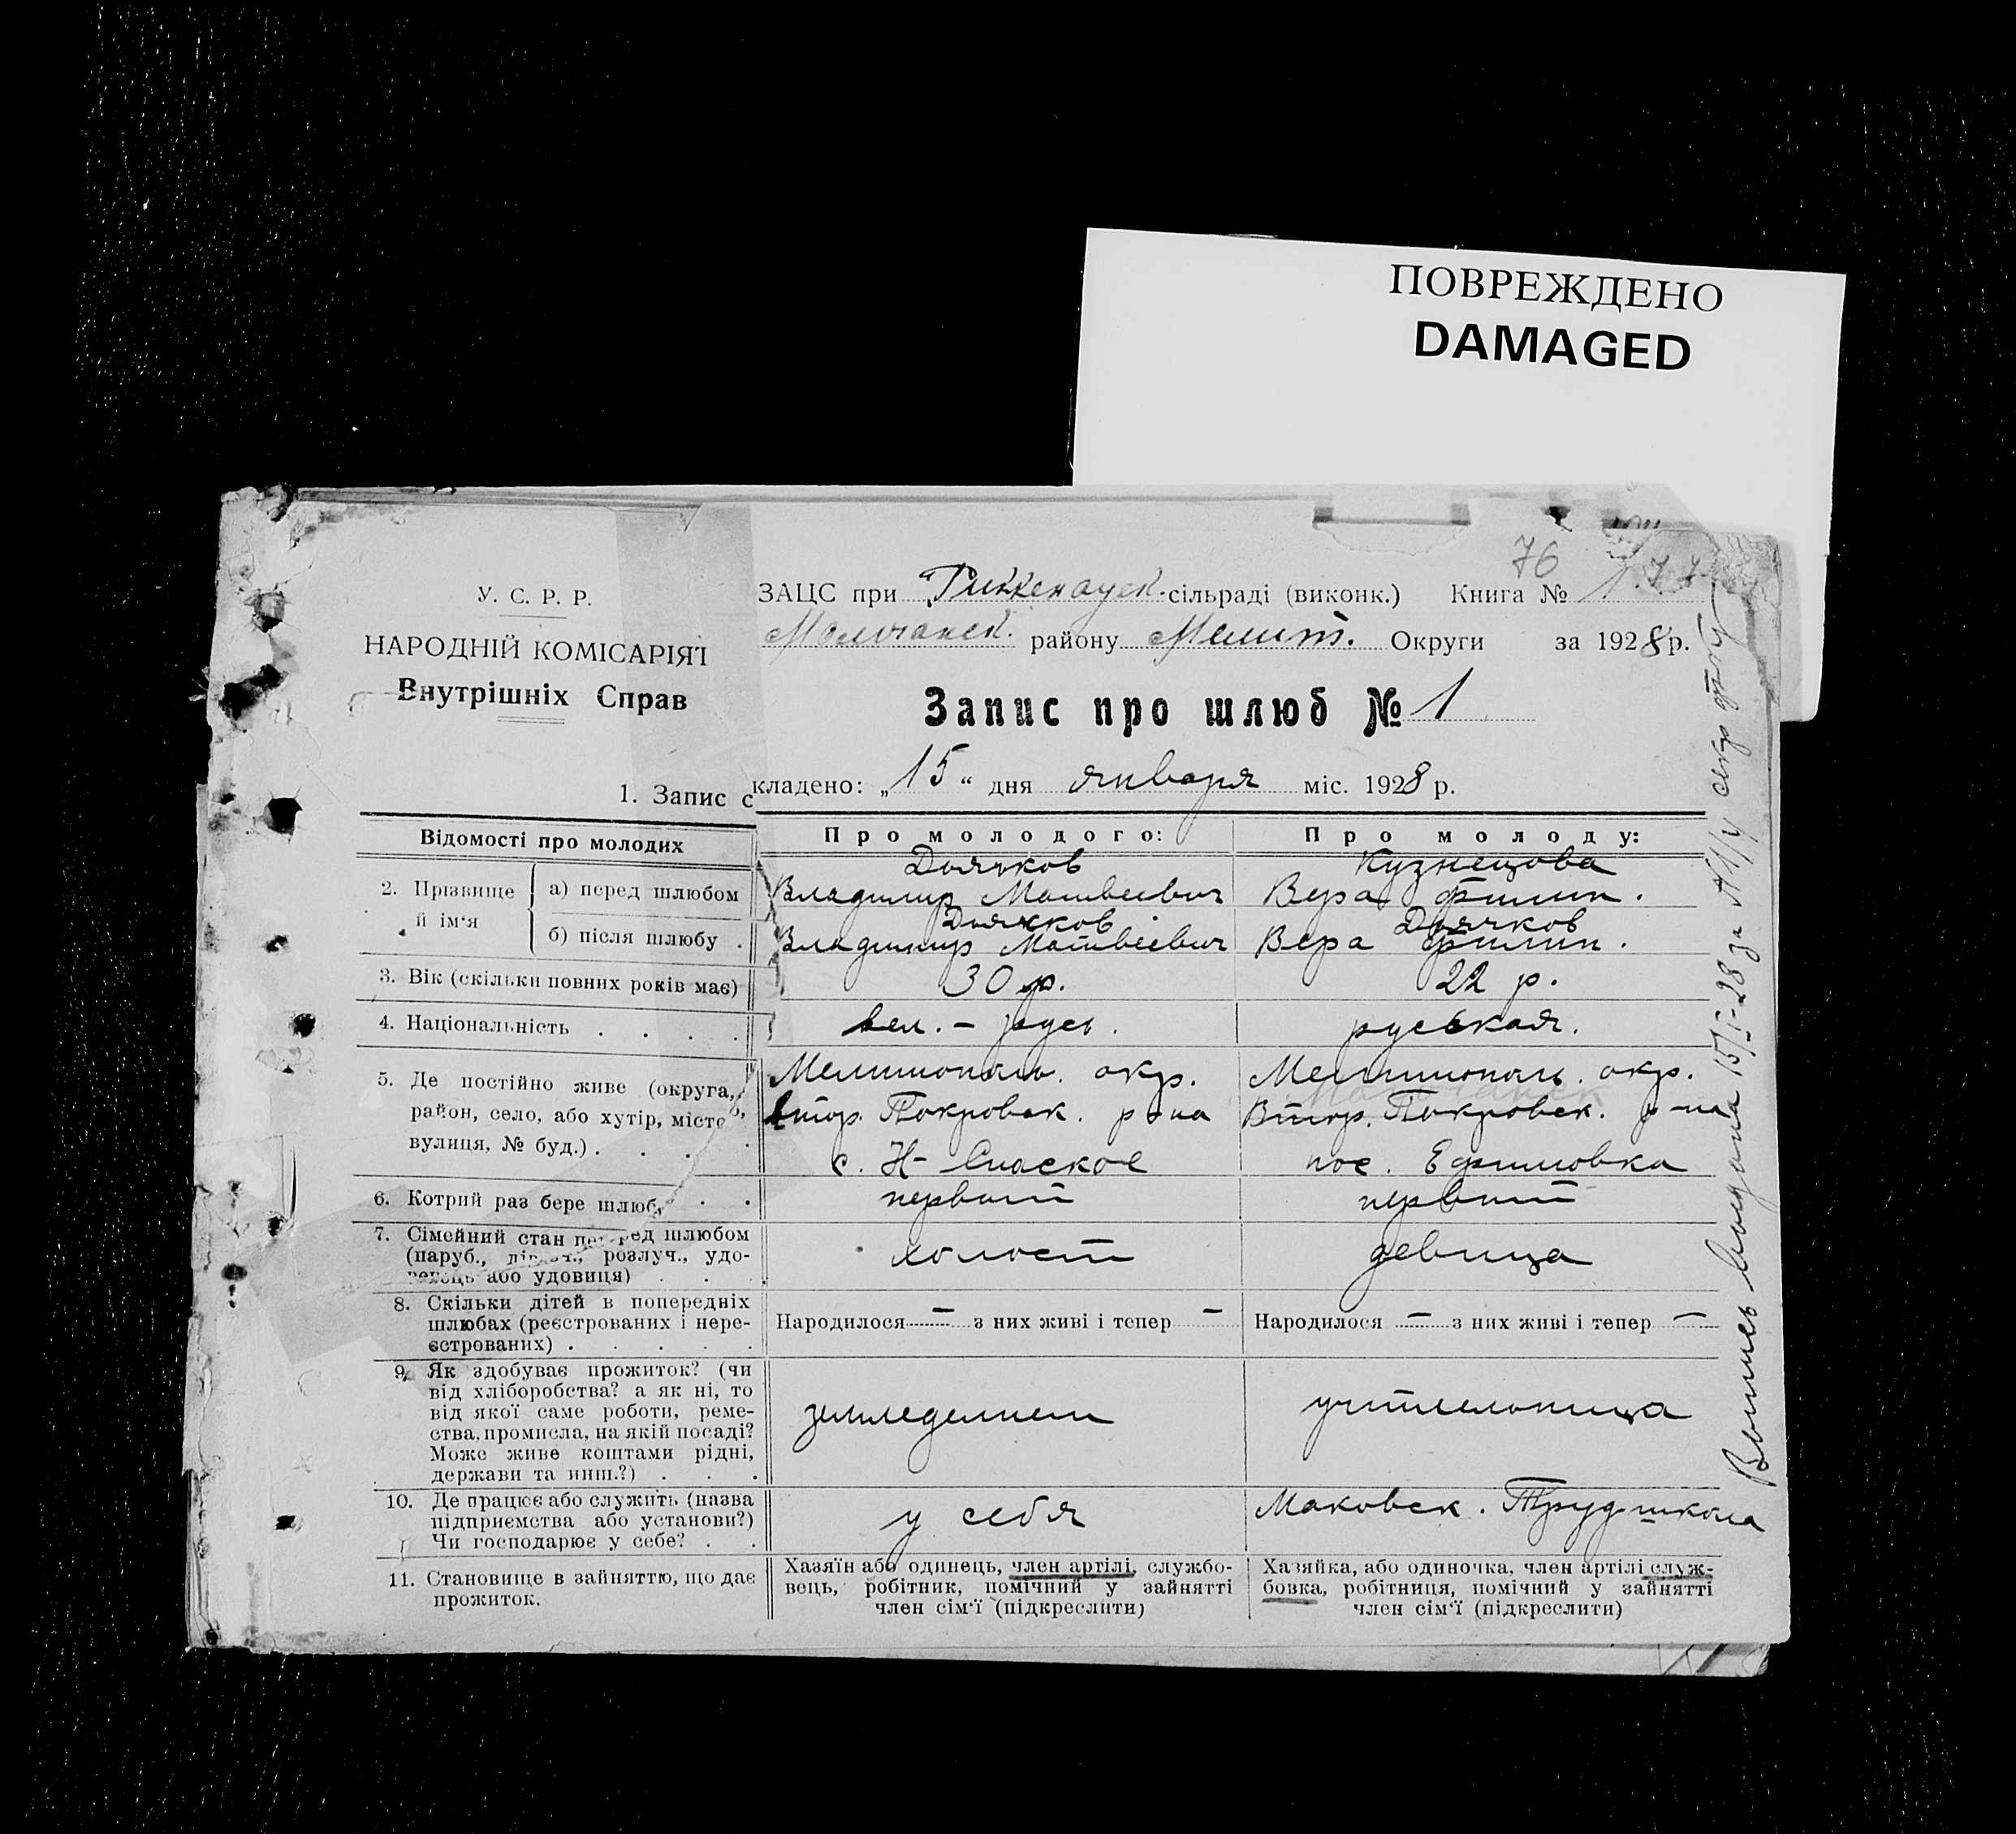 ПОВРЕЖДЕНО
DAMAGED
76
У. С. Р. Р.
НАРОДНІЙ КОМІСАРІЯТ
Внутрішніх Справ
ЗАЦС при Риккенауск. сільраді (виконк.) Книга № 1
Молочанск. району Мелит. Округи за 1928 р.
Запис про шлюб № 1
1. Запис складено: „15“ дня января міс. 1928 р.
Відомості про молодих
Про молодого:
Про молоду:
2. Прізвище й ім'я
а) перед шлюбом
Дьячков
Владимир Матвеевич
Кузнецова
Вера Филип.
б) після шлюбу .
Дьячков
Владимир Матвеевич
Дьячков
Вера Филип.
3. Вік (скільки повних років має)
30 р.
22 р.
4. Національність . . . .
вел. - русь.
руськая.
5. Де постійно живе (округа,
район, село, або хутір, місто,
вулиця, № буд.) . . . .
Мелитополь. окр.
Втор. Покровск. р-на
с. Н-Спаское
Мелитополь. окр.
Втор. Покровск. р-на
пос. Ефимовка
6. Котрий раз бере шлюб, . .
первый
первый
7. Сімейний стан перед шлюбом
(паруб., дівоч., розлуч., удо-
вець або удовиця) . . .
холост
девица
8. Скільки дітей в попередніх
шлюбах (реєстрованих і нере-
єстрованих) . . . . .
Народилося — з них живі і тепер —
Народилося — з них живі і тепер —
9. Як здобуває прожиток? (чи
від хліборобства? а як ні, то
від якої саме роботи, реме-
ства, промисла, на якій посаді?
Може живе коштами рідні,
держави та инш.?) . . .
земледелием
учительница
10. Де працює або служить (назва
підприємства або установи?)
Чи господарює у себе? . .
у себя
Маковск. Трудшкола
11. Становище в зайняттю, що дає
прожиток.
Хазяїн або одинець, член артілі, службо-
вець, робітник, помічний у зайнятті
член сім'ї (підкреслити)
Хазяйка, або одиночка, член артілі служ-
бовка, робітниця, помічний у зайнятті
член сім'ї (підкреслити)
Выпись выдана 15/I-28 за №1/